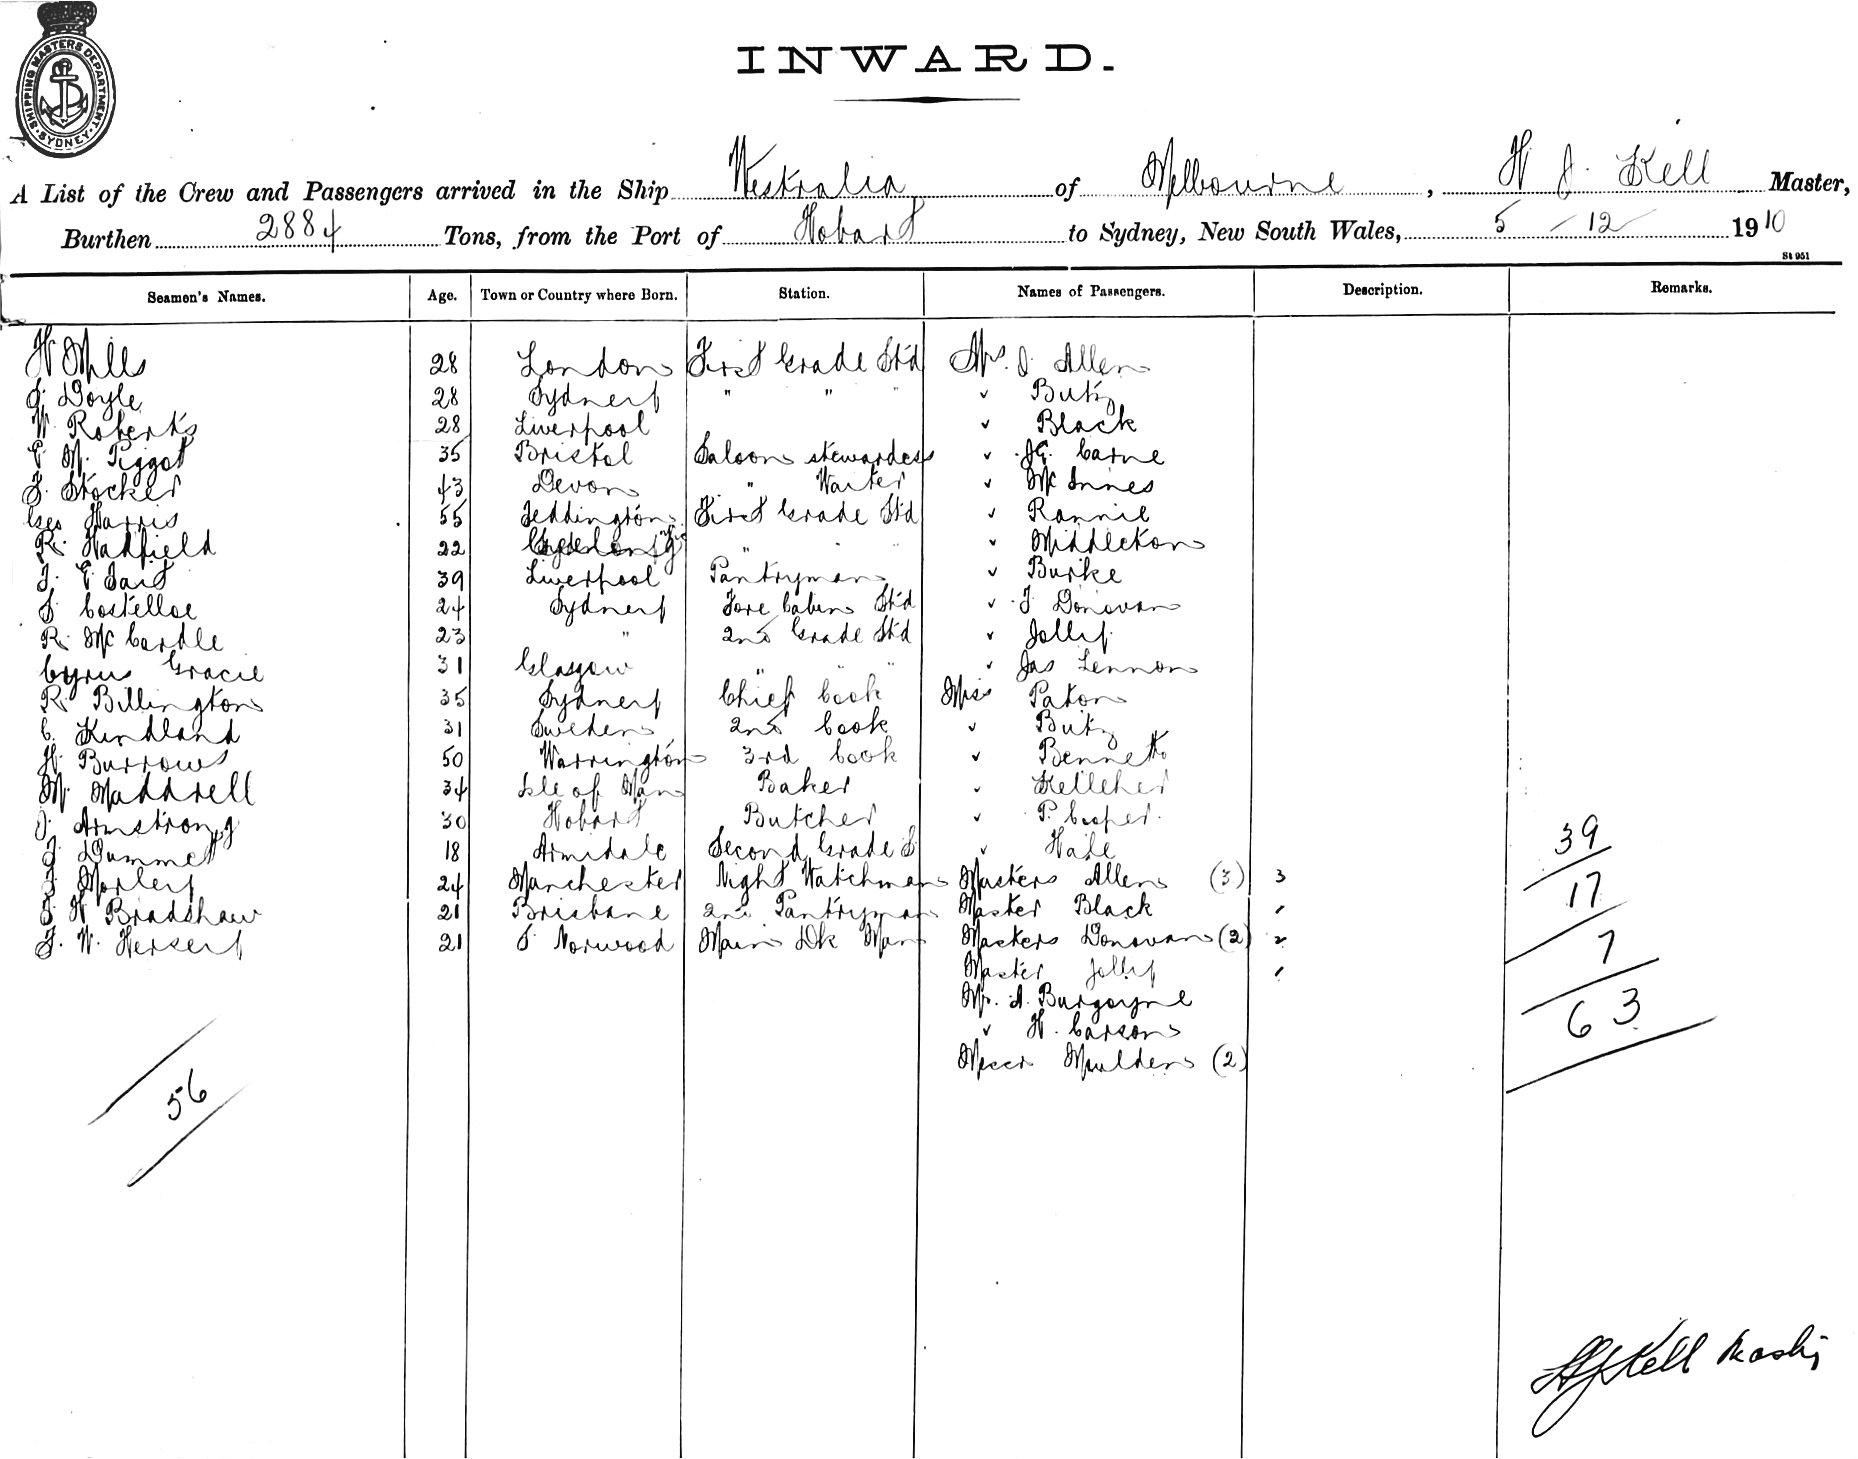 SHIPPING MASTERS DEPARTMENT. SYDNEY
INWARD.
A List of the Crew and Passengers arrived in the Ship Westralia of Melbourne, H J. Kell Master,
Burthen 2884 Tons, from the Port of Hobart to Sydney, New South Wales, 5-12-1910
St 951
Seamen's Names. Age. Town or Country where Born. Station. Names of Passengers. Description. Remarks.
H Mills 28 London First Grade Std Mrs J. Allen
J. Doyle 28 Sydney " " " " Butz
W. Roberts 28 Liverpool " Black
E M. Piggot 35 Bristol Saloon stewardess " J.G. Carne
F. Stocker 43 Devon " Waiter " McInnes
Geo Harris 55 Teddington First Grade Std " Rannie
R. Hadfield 22 " " " " Middleton
F. E Tait 39 Liverpool Pantryman " Burke
S. Costelloe 24 Sydney Fore Cabin Std " J Donovan
R. McCardle 23 " 2nd Grade Std " Jolly
Cyrus Gracie 31 Glasgow " " " " Jas Lennon
R. Billington 35 Sydney Chief Cook Miss Paton
C. Kindland 31 Sweden 2nd Cook " Butz
H. Burrows 50 Warrington 3rd Cook " Bennetto
M. Maddrell 34 Isle of Man Baker " Kelleher
J. Armstrong 30 Hobart Butcher " P. Cooper.
J. Dummet 18 Armidale Second Grade S " Hale 39
J. Morley 24 Manchester Night Watchman Masters Allen (3) 3 17
S. H Bradshaw 21 Brisbane 2nd Pantryman Master Black 1
J. W. Hersey 21 S Norwood Main Dk Man Masters Donovan (2) 2 7
Master Jolly 1
Mr. A. Burgoyne 63
" H. Carson
Messrs Moulden (2)
56
HJKell Master